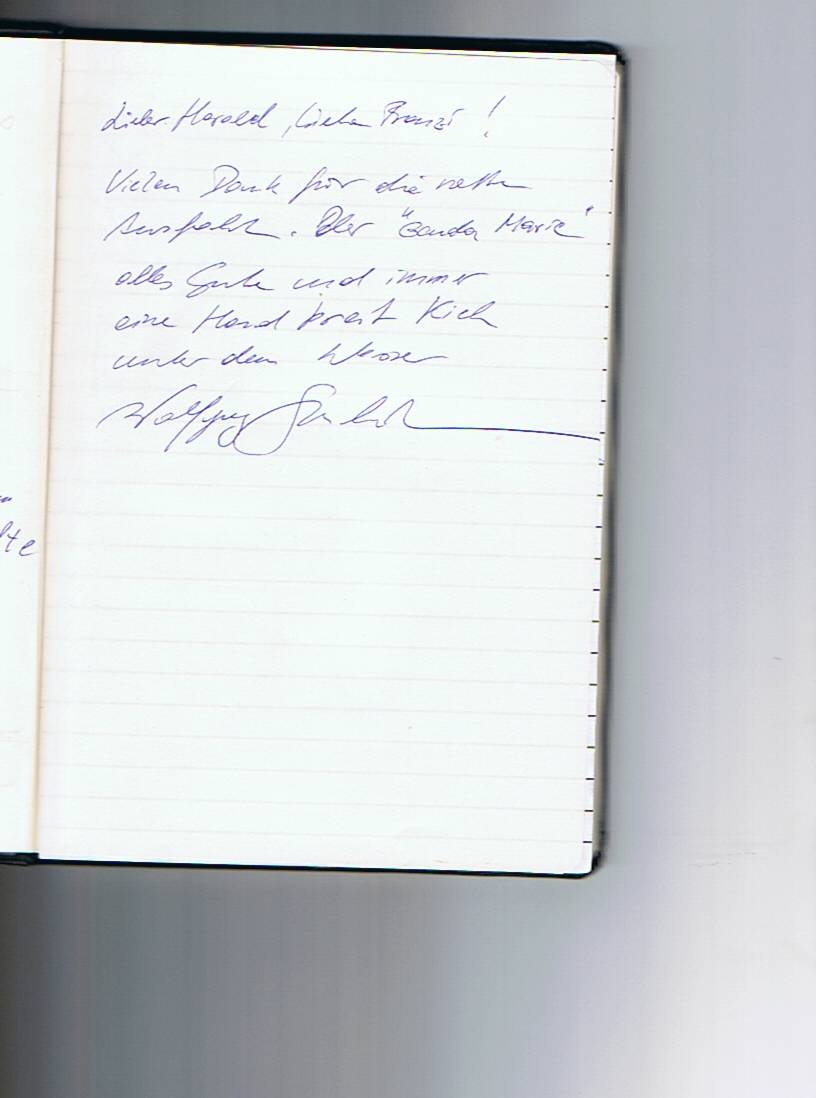 Lieber Harald, liebe Franzi!
Vielen Dank für die nette
Ausfahrt. Der "Gouda Marie"
alles Gute und immer
eine Hand breit Kiel
unter dem Wasser
Wolfgang
lte